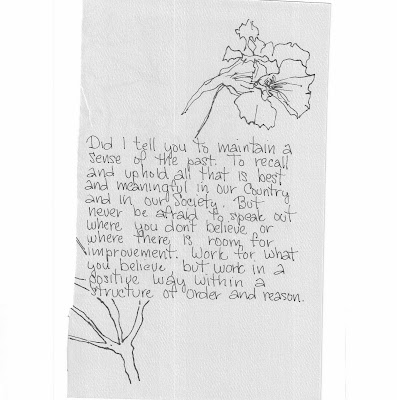 Did I tell you to maintain a
sense of the past. To recall
and uphold all that is best
and meaningful in our Country
and in our Society. But
never be afraid to speak out
where you dont believe or
where there is room for
improvement. Work for what
you believe, but work in a
positive way within a
structure of order and reason.